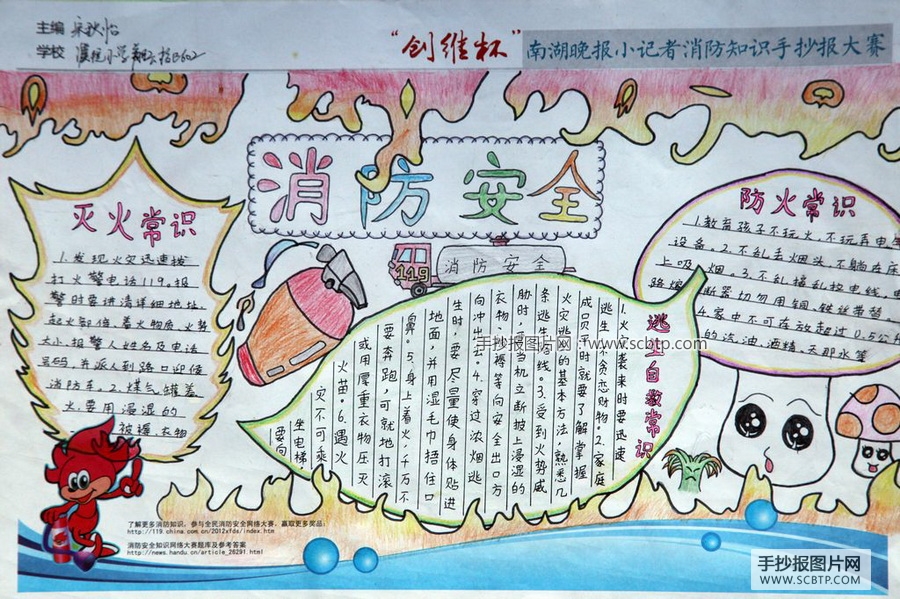 主编 宋秋怡
学校
“创维杯”南湖晚报小记者消防知识手抄报大赛
消防安全
灭火常识
1.发现火灾迅速拨
打火警电话119。报
警时要讲清详细地址、
起火部位、着火物质、火势
大小、报警人姓名及电话
号码,并派人到路口迎候
消防车。2.煤气罐着
火,要用浸湿的
被褥、衣物
119
消防安全
防火常识
1.教育孩子不玩火,不玩弄电器
设备。2.不乱丢烟头,不躺在床
上吸烟。3.不乱接乱拉电线,电
路熔断器切勿用铜、铁丝代替。
4.家中不可存放超过0.5公斤
的汽油、酒精、天那水等
逃生自救常识
1.火灾袭来时要迅速
逃生,不贪恋财物。2.家庭
成员平时就要了解掌握
火灾逃生的基本方法,熟悉几
条逃生路线。3.受到火势威
胁时,要当机立断披上浸湿的
衣物、被褥等向安全出口方
向冲出去。4.穿过浓烟逃
生时,要尽量使身体贴进
地面,并用湿毛巾捂住口
鼻。5.身上着火,千万不
要奔跑,可就地打滚
或用厚重衣物压灭
火苗。6.遇火
灾不可乘
坐电梯,
要向
手抄报图片网:www.scbtp.com
了解更多消防知识,参与全民消防安全网络大赛,赢取更多奖品:
http://119.china.com.cn/2012xfds/index.htm
消防安全知识网络大赛题库及参考答案
http://news.handu.cn/article_26291.html
手抄报图片网
WWW.SCBTP.COM